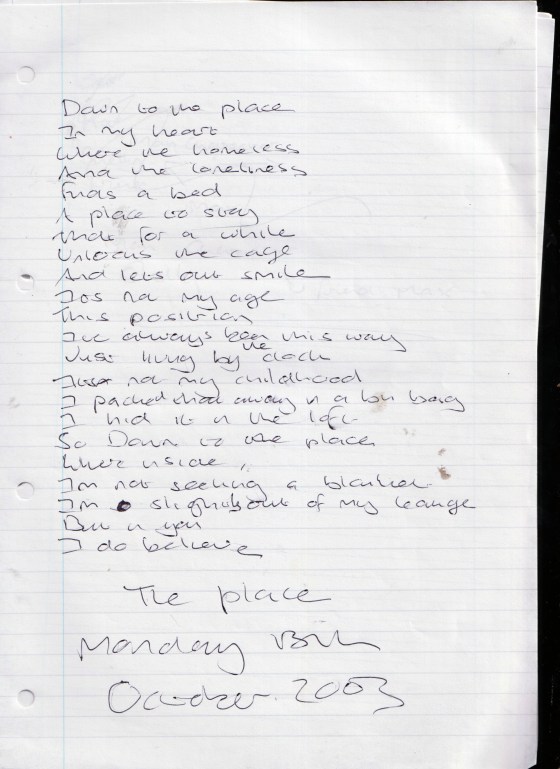 Down to the place
In my heart
Where the homeless
And the loneliness
Finds a bed
A place to stay
That for a while
Unlocks the cage
And lets out smile
Its not my age
This position
I've always been this way
Just living by the clock
Its not my childhood
I packed that away in a bin bag
I hid it in the loft
So Down to the place
Where inside
I'm not seeking a blanket
I'm slightly out of my league
But in you
I do believe
The place
Monday
October 2003